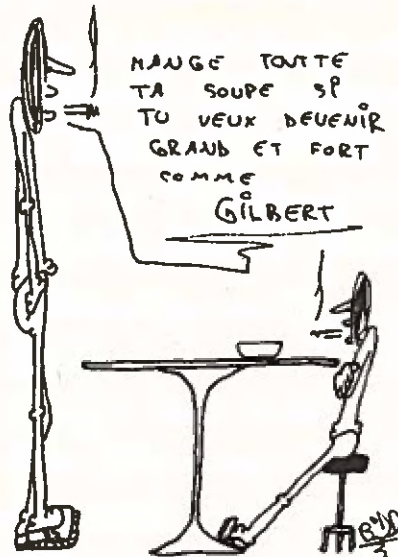 MANGE TOUTTE
TA SOUPE SI
TU VEUX DEVENIR
GRAND ET FORT
COMME
GILBERT